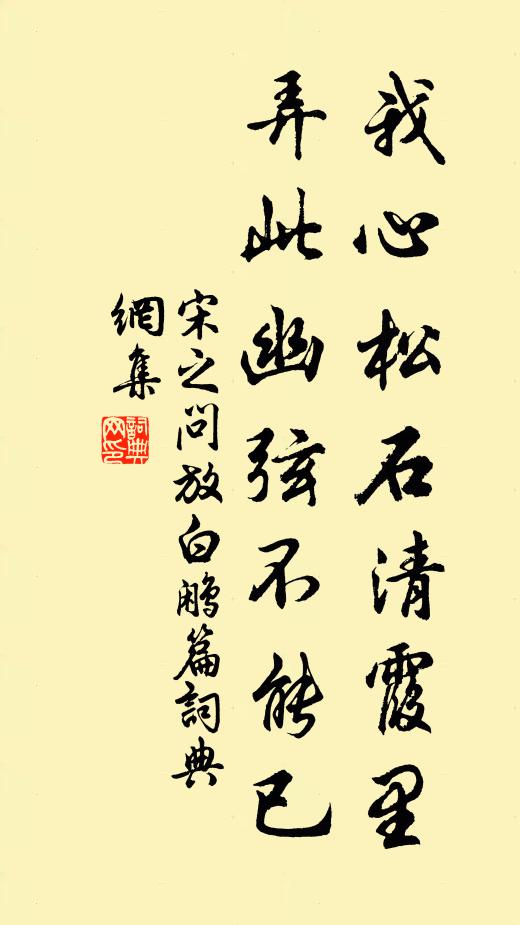 我心松石清霞里
弄此幽弦不能已
宋之问放白鹇篇詞典
網集
詞典網印